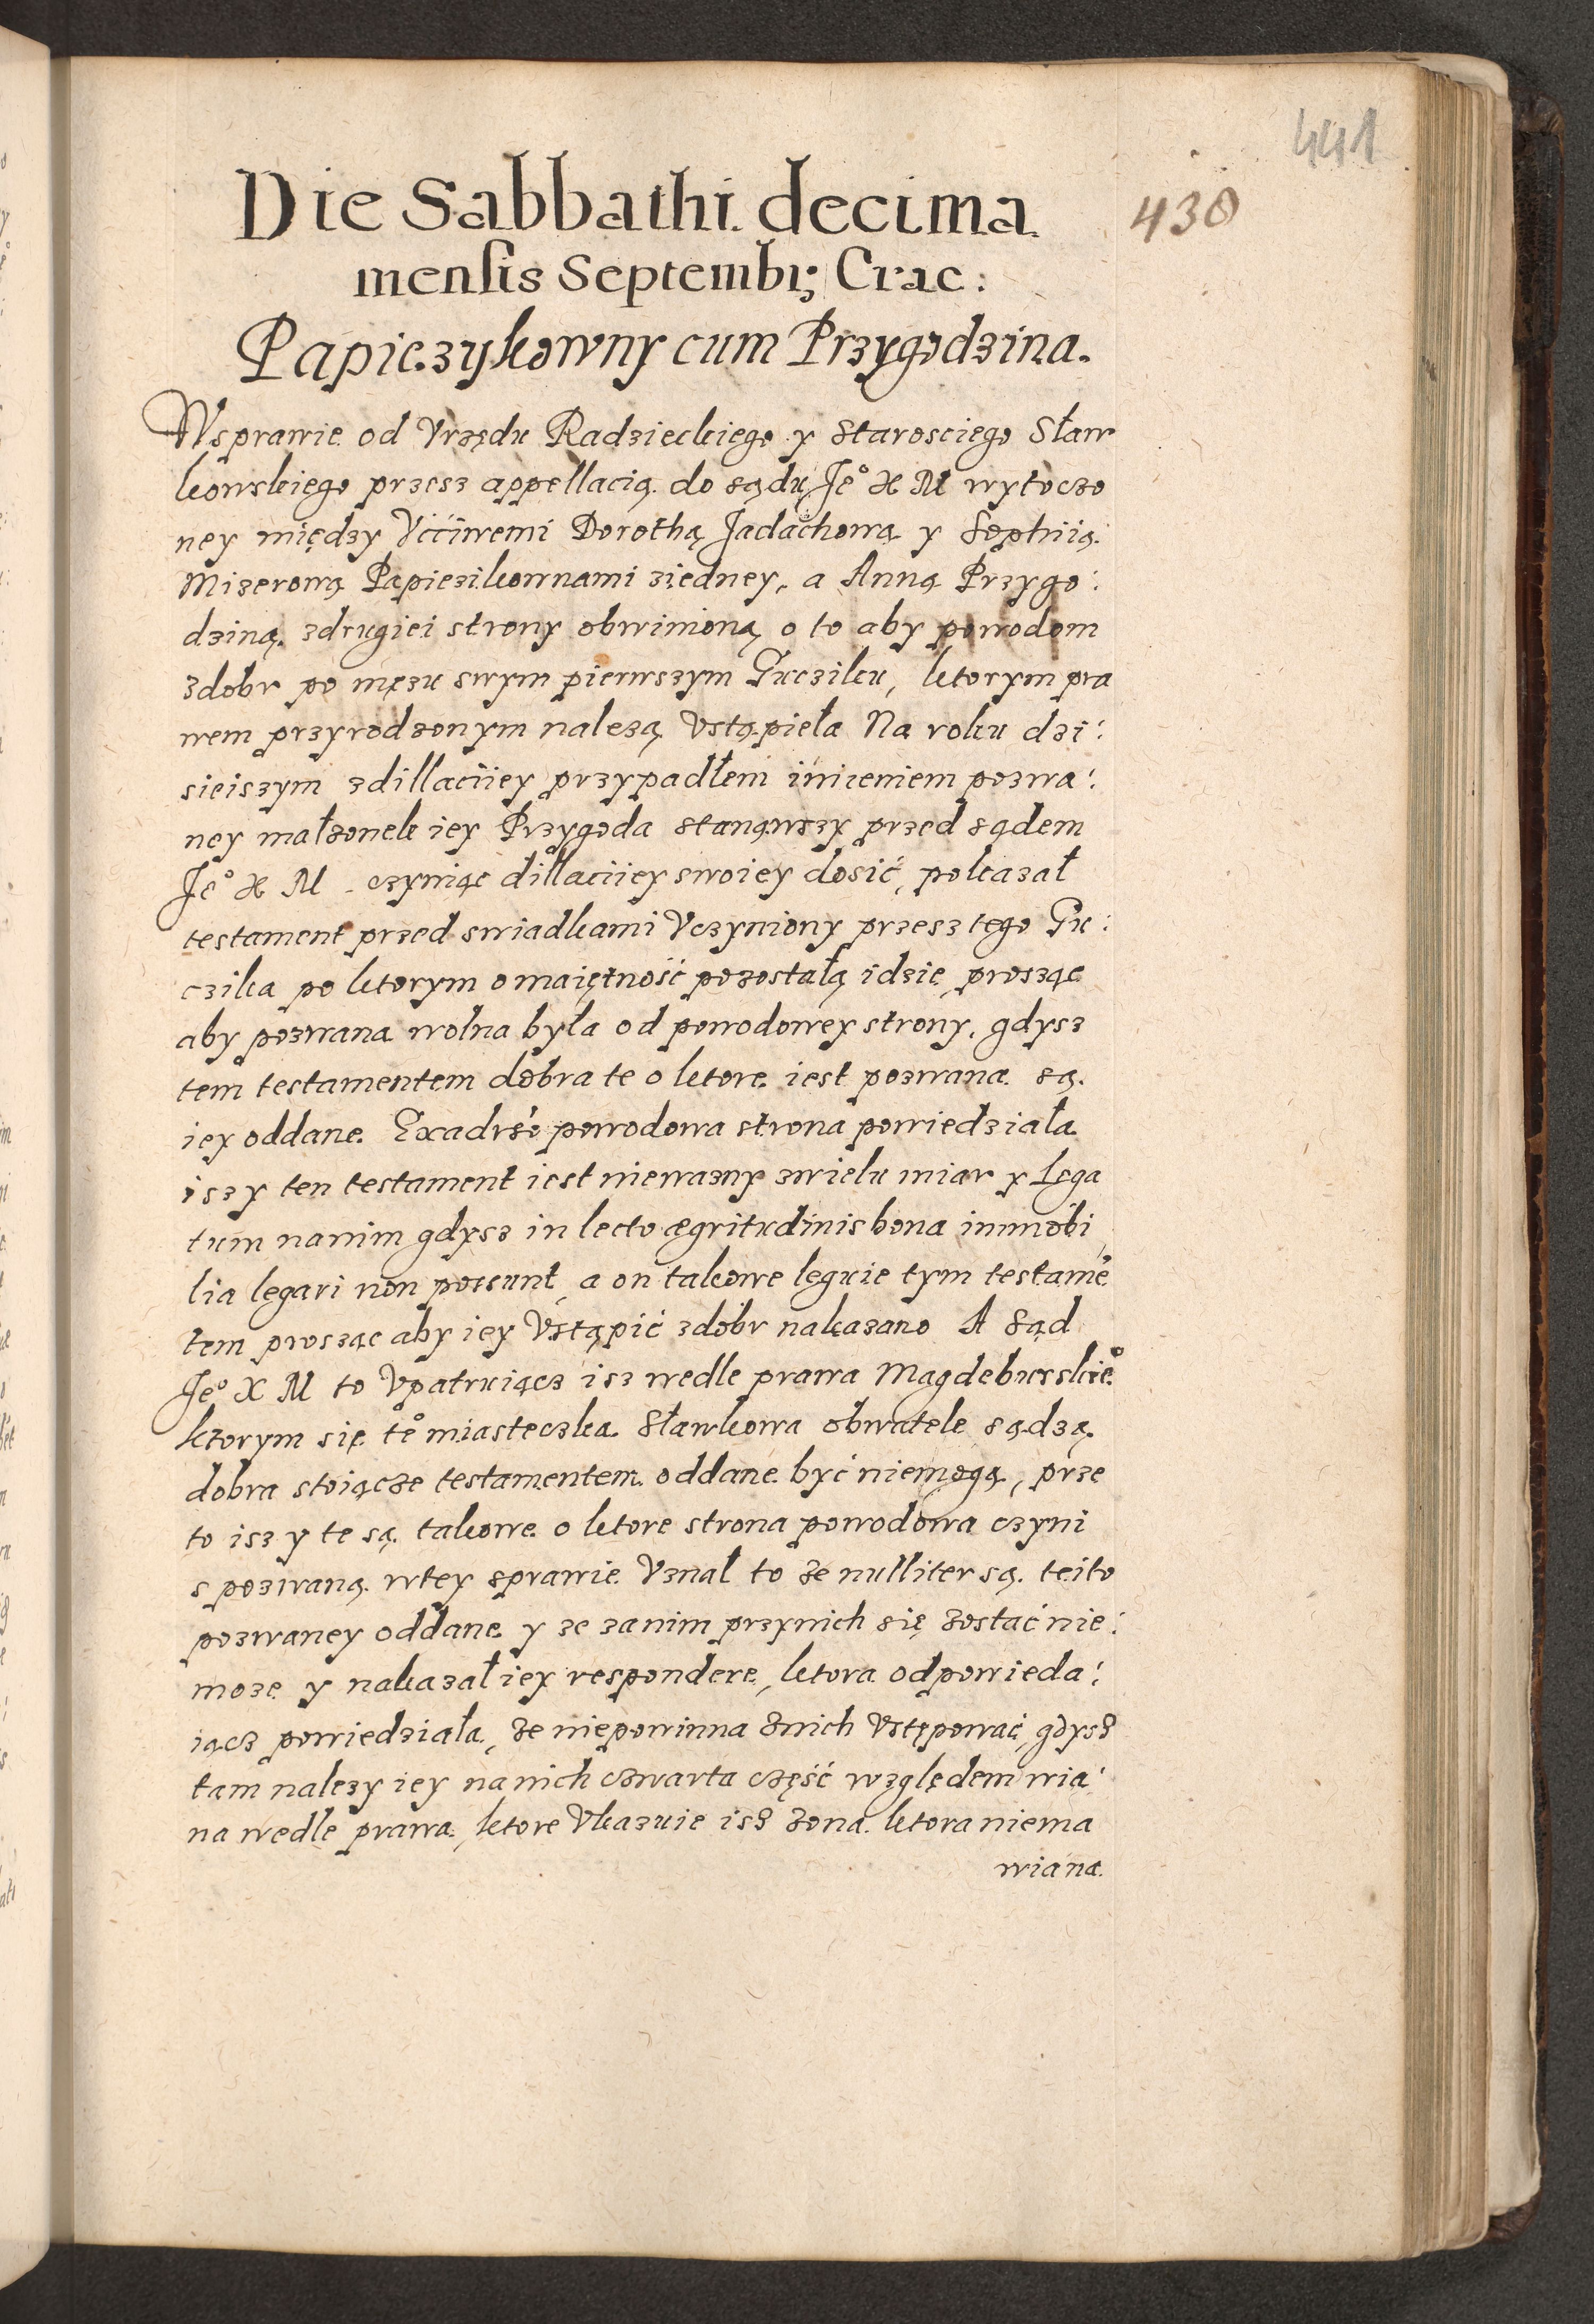 441
Die Sabbathi decima 430
mensis Septembr; Crac:
Papieżykowny cum Przygodzina.
Wsprawie od Vrzędu Radzieckiego y Starosciego Sław
kowskiego przesz appellacią do sądu Je° X M wytoczo
ney między Vććiwemi Dorothą Jadachową y Zophiią
Mizerową Papieżikownami ziedney, a Anną Przygo:
dziną zdrugiei strony obwinioną o to aby powodom
zdobr po męzu swym pierwszym Guczilku, ktorym pra
wem przyrodzonym nalezą Vstąpieła Na roku dzi:
sieiszym zdillaciiey przypadłem imieniem pozwa:
ney małzonek iey Przygoda stanąwszy przed sądem
Je° X M czyniąc dillaciiey swoiey dosić, pokazał
testament przed swiadkami Vczyniony przesz tego Gu:
czilka po ktorym o maiętność pozostałą idzie, prosząc
aby pozwana wolna była od powodowey strony, gdysz
tem testamentem dobra te o ktore iest pozwana są
iey oddane. Ex adrso powodowa strona powiedziała
isz y ten testament iest niewazny zwielu miar y Lega
tum nanim gdysz in lecto ægritudinis bona immobi
lia legari non possunt, a on takowe leguie tym testamē
tem prosząc aby iey Vstąpić zdobr nakazano A Sąd
Je° X M to Vpatruiącz isz wedle prawa Magdeburskie°
ktorym się te° miasteczka Sławkowa obwatele sądzą
dobra stoiącze testamentem oddane być niemogą, prze
to isz y te są takowe o ktore strona powodowa czyni
s pozwaną wtey sprawie Vznał to ze nulliter są teito
pozwaney oddane y ze zanim przynich się zostać nie:
moze y nakazał iey respondere, ktora odpowieda:
iącz powiedziała, ze niepowinna znich Vstępować, gdysz
tam nalezy iey nanich czwarta część względem wia:
na wedle prawa, ktore Vkazuie isz zona ktora niema
wiana